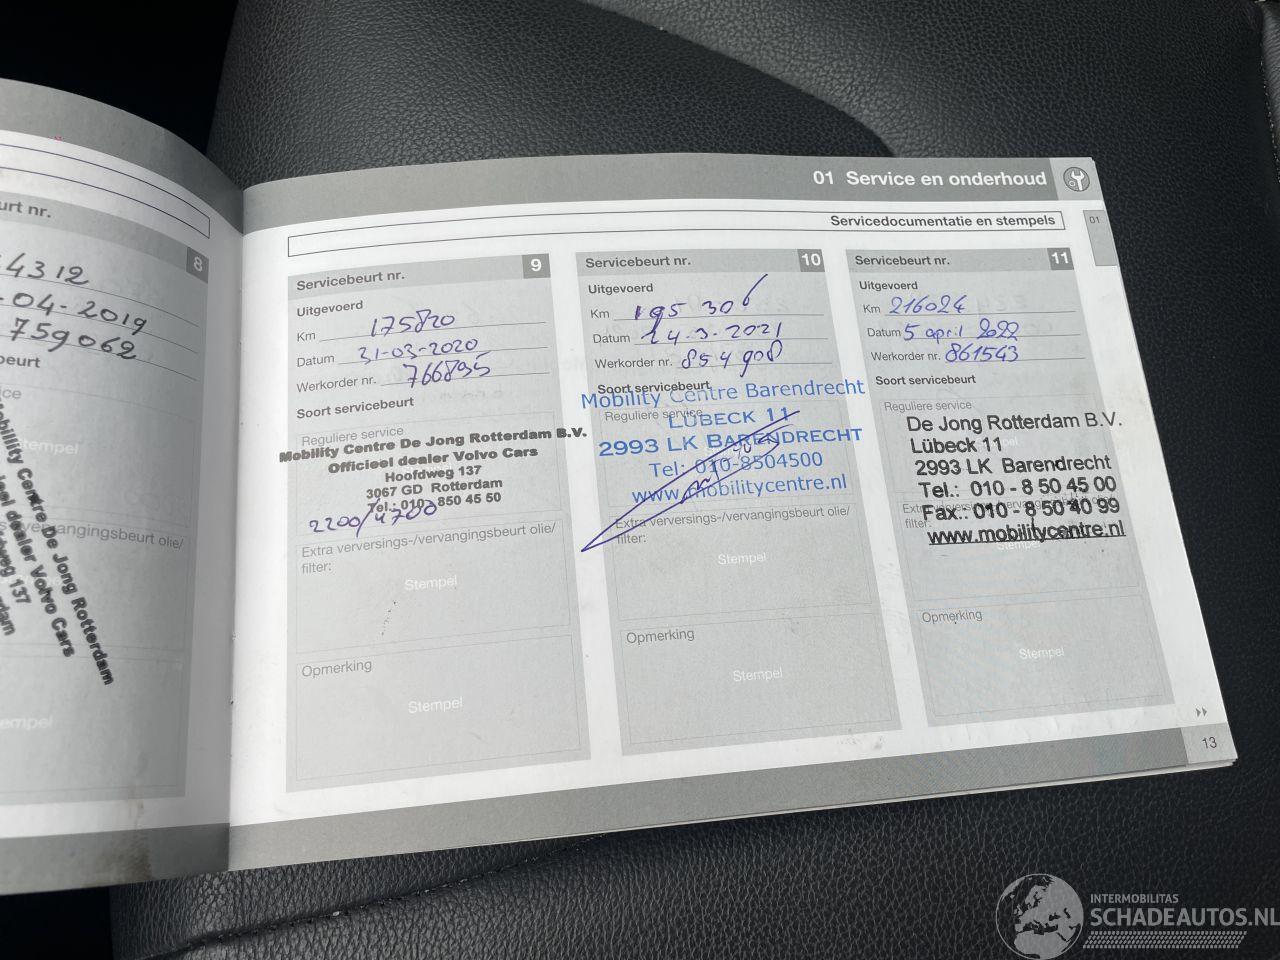 urt nr.
8
4312
-04-2019
759062
beurt
ice
Stempel
Mobility Centre De Jong Rotterdam
dealer Volvo Cars
weg 137
vervangingsbeurt olie/
01 Service en onderhoud
Servicedocumentatie en stempels
01
Servicebeurt nr. 9
Uitgevoerd
Km 175820
Datum 31-03-2020
Werkorder nr. 766895
Soort servicebeurt
Reguliere service
Mobility Centre De Jong Rotterdam B.V.
Officieel dealer Volvo Cars
Hoofdweg 137
3067 GD Rotterdam
Tel.: 010 - 850 45 50
2200/4700
Extra verversings-/vervangingsbeurt olie/
filter:
Stempel
Opmerking
Stempel
Servicebeurt nr. 10
Uitgevoerd
Km 195 306
Datum 24-3-2021
Werkorder nr. 854908
Soort servicebeurt
Mobility Centre Barendrecht
Reguliere service
LÜBECK 11
2993 LK BARENDRECHT
Tel: 010-8504500
www.mobilitycentre.nl
Extra verversings-/vervangingsbeurt olie/
filter:
Stempel
Opmerking
Stempel
Servicebeurt nr. 11
Uitgevoerd
Km 216024
Datum 5 april 2022
Werkorder nr. 861543
Soort servicebeurt
Reguliere service
De Jong Rotterdam B.V.
Lübeck 11
2993 LK Barendrecht
Tel.: 010 - 8 50 45 00
Fax.: 010 - 8 50 40 99
www.mobilitycentre.nl
Extra
filter:
Stempel
Opmerking
Stempel
13
INTERMOBILITAS
SCHADEAUTOS.NL